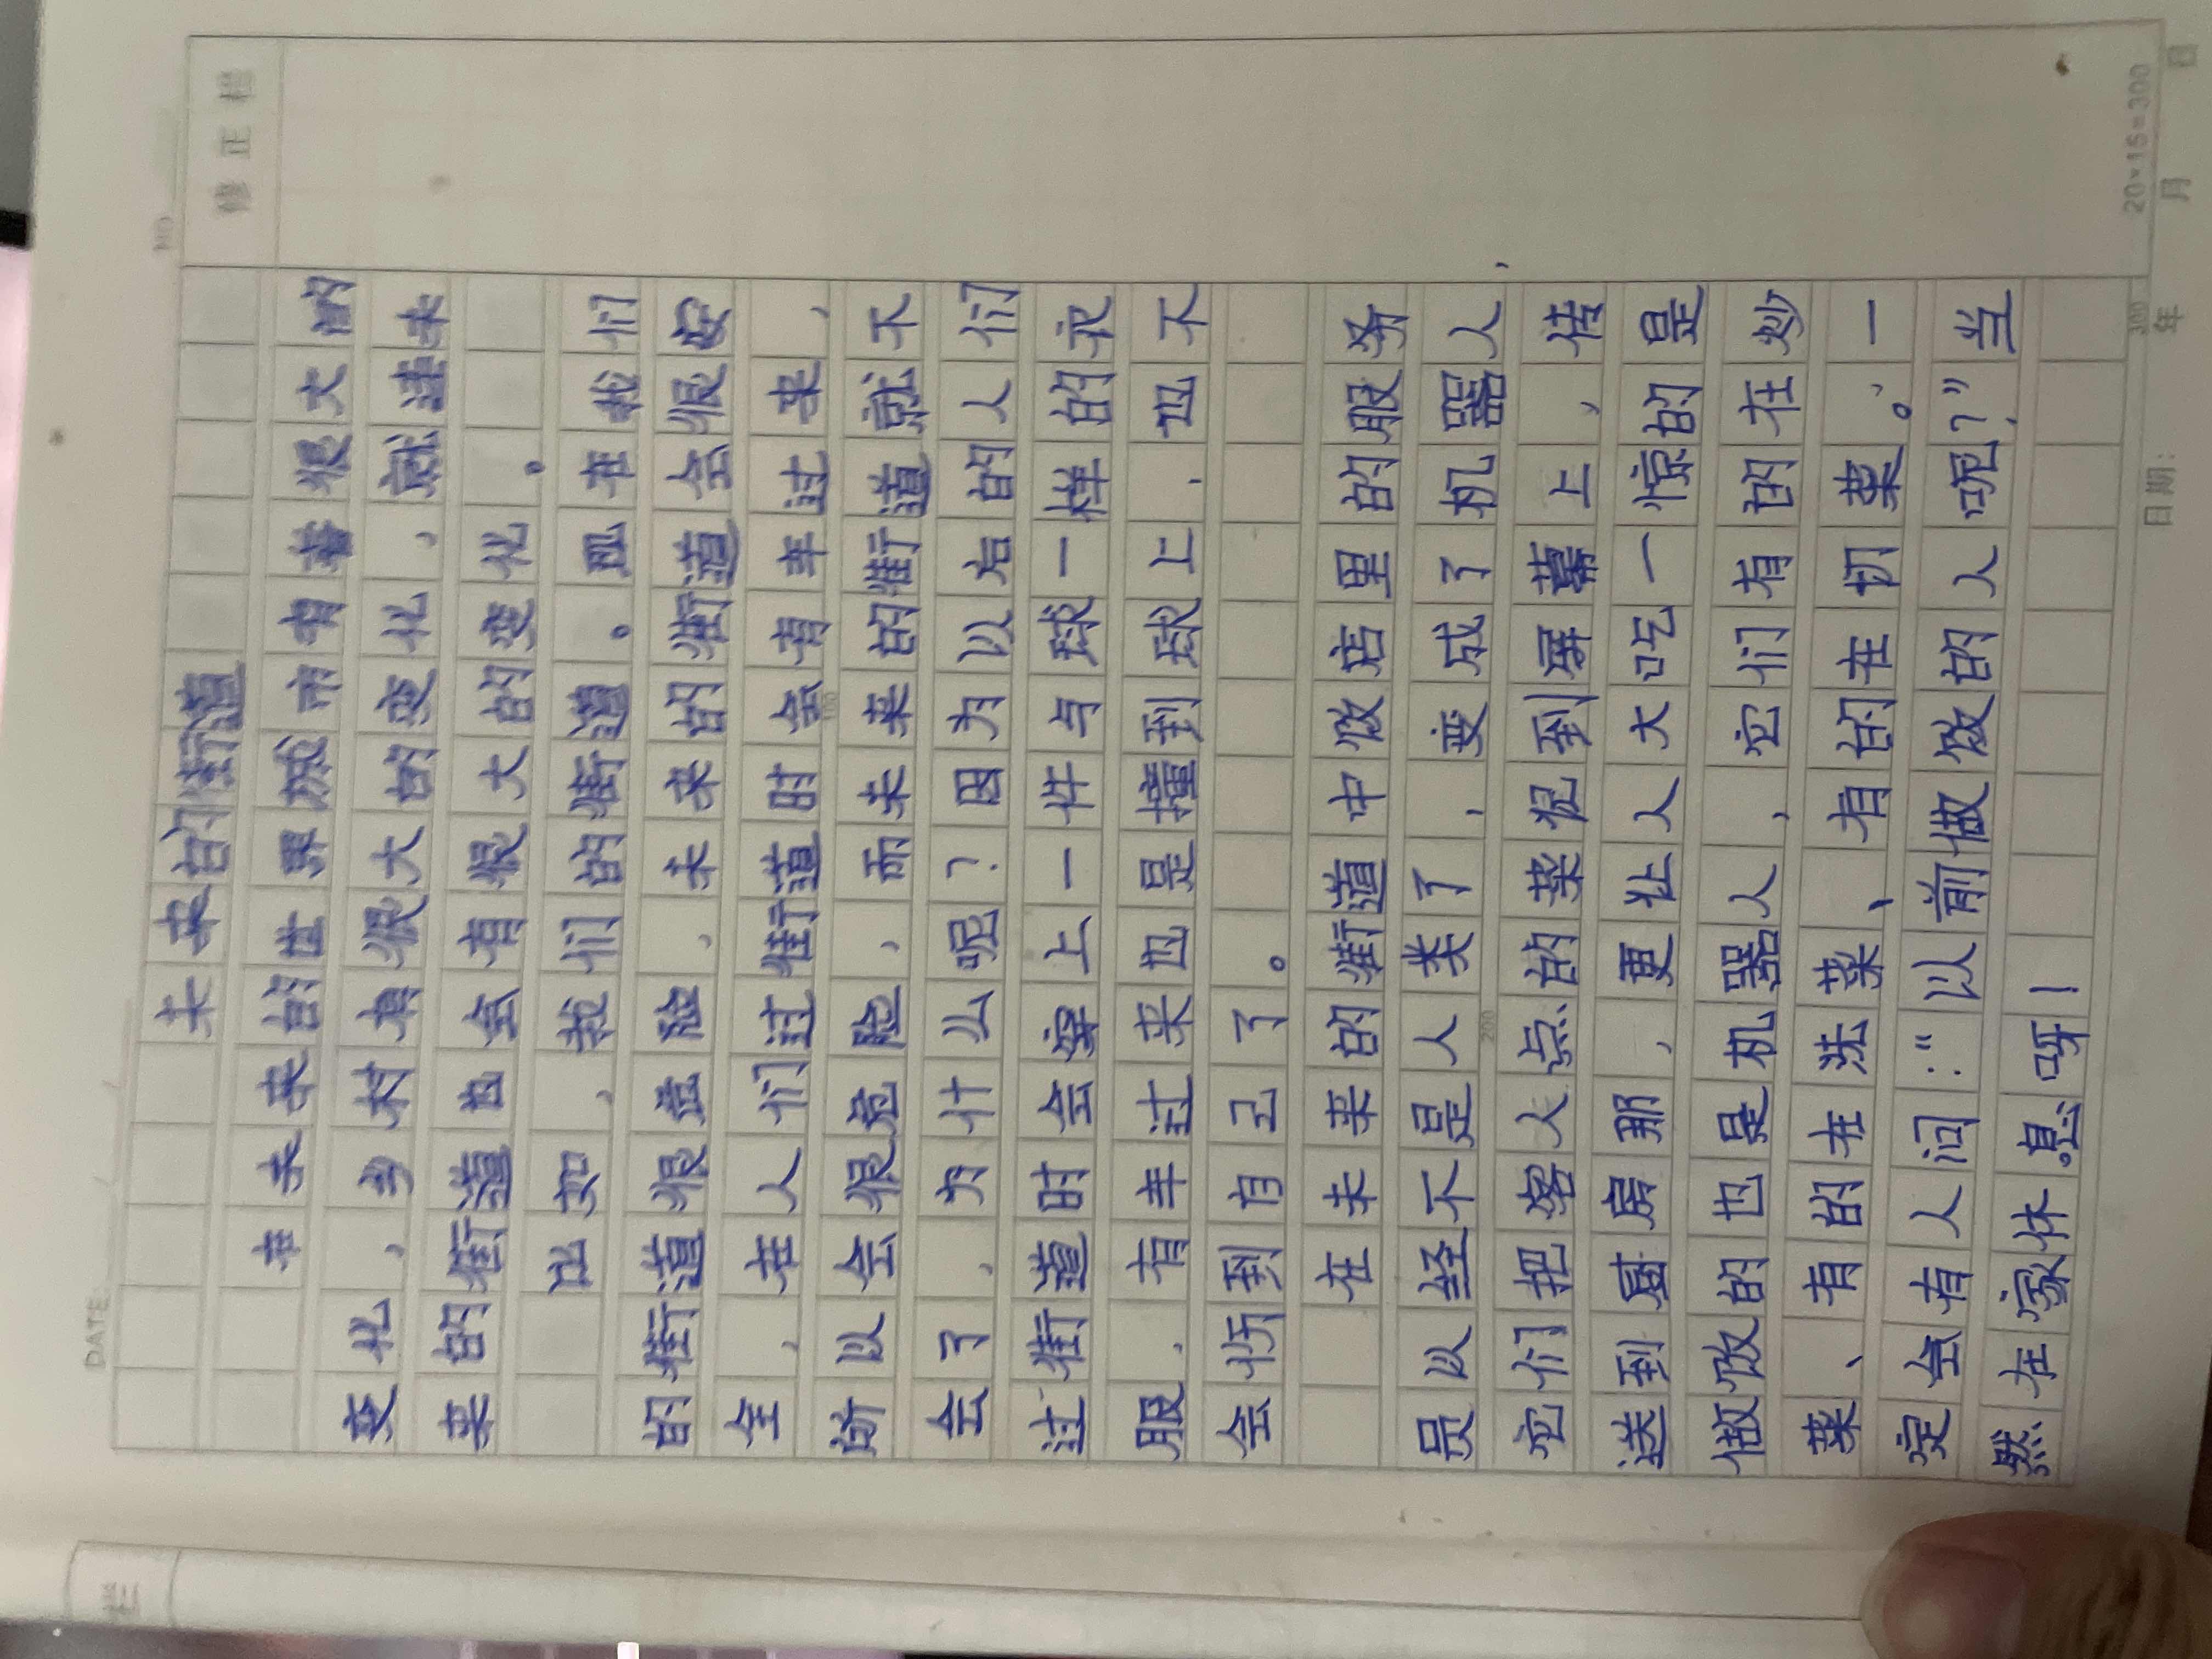 NO
DATE
修正栏
未来的街道
在未来的世界城市有着很大的
变化，乡村有很大的变化，就连未
来的街道也会有很大的变化。
比如，我们的街道。现在我们
的街道很危险，未来的街道会很安
全，在人们过街道时会有车过来，
所以会很危险，而未来的街道就不
会了，为什么呢？因为以后的人们
过街道时会穿上一件与球一样的衣
服，有车过来也是撞到球上，也不
会伤到自己了。
在未来的街道中饭店里的服务
员以经不是人类了，变成了机器人，
它们把客人点的菜记到屏幕上，传
送到厨房那，更让人大吃一惊的是
做饭的也是机器人，它们有的在炒
菜、有的在洗菜、有的在切菜。一
定会有人问：“以前做饭的人呢？”当
然在家休息呀！
100
200
300
20×15=300
日期：
年
月
日
修正栏